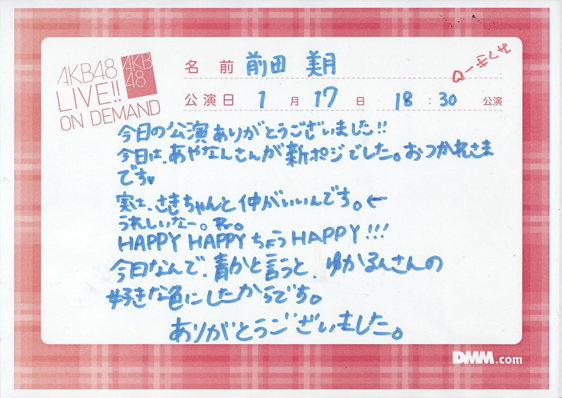 AKB48
LIVE!!
ON DEMAND
AKB
48
名前 前田 美月
公演日 1月17日 18:30 公演
今日の公演ありがとうございました!!
今日は、あやなんさんが新ポジでした。おつかれさま
です♥
実は、さきちゃんと仲がいいんです。←
うれしいなー。
HAPPY HAPPY ちょう HAPPY!!!
今日なんで、青かと言うと、ゆかるんさんの
好きな色にしたからです。
ありがとうございました。
DMM.com